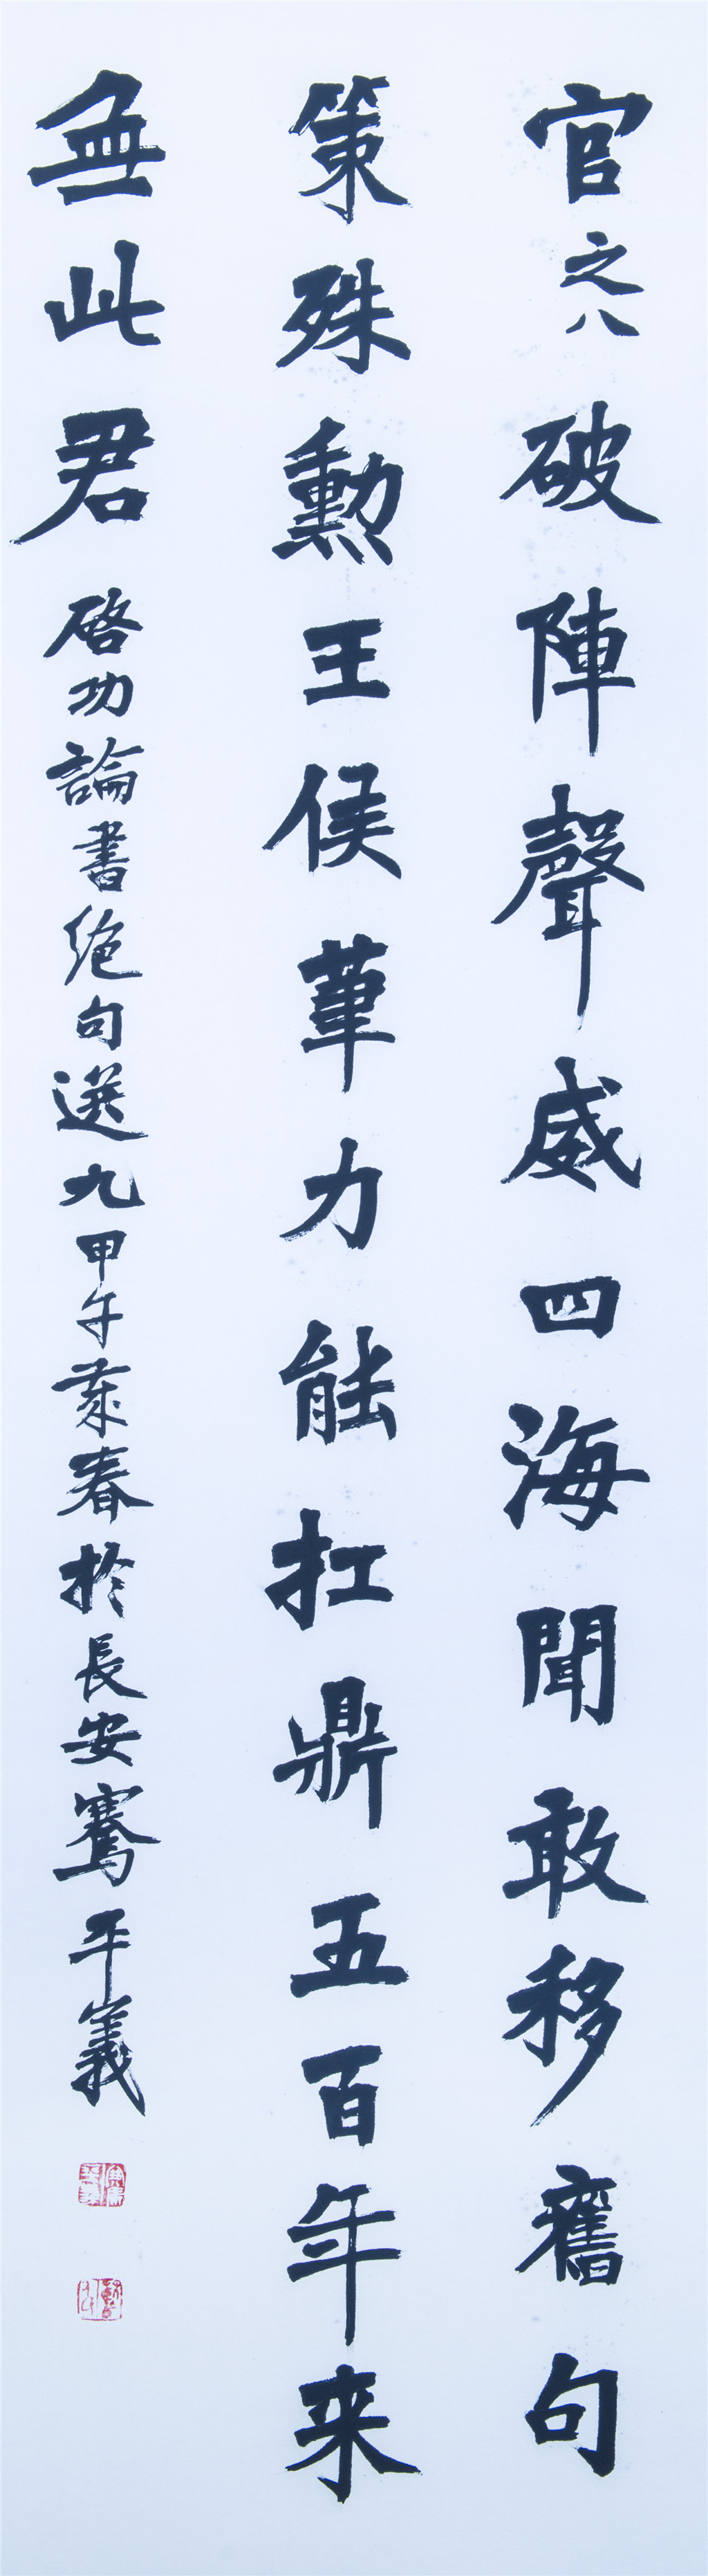 官之八破陣聲威四海聞敢移舊句
策殊勳王侯筆力能扛鼎五百年来
無此君
啓功論書絶句選九甲午歲春於長安騫平義